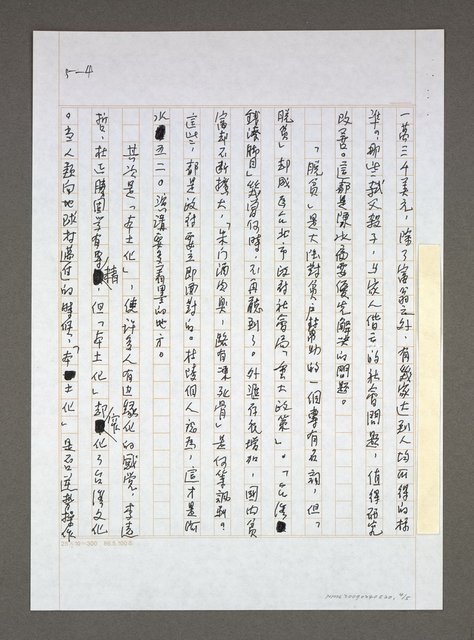 5-4
一萬三千美元，除了富翁之外，有幾家大到人均所得的標
準。那些弑父殺子，與家人偕亡的社會問題，值得研究
改善。這都是陳水扁要優先解決的問題。
「脫貧」是大法對貧戶幫助的一個專有名詞，但，「
脫貧」却成為台北市政府社會局「重大政策」。「台灣
錢淹脚目」幾曾何時，不再聽到了。外滙存底增加，國內貧
富却不斷擴大，「朱門酒肉臭，路有凍死骨」是何等諷刺？
這些，都是政府要立即面對的。杜凌個人認為，這才是陳
水扁五二〇演講要多著墨的地方。
其次是「本土化」，使許多人有邊緣化的感覺，李遠
哲、杜正勝固學有專精，但「本土化」却窄化了台灣文化
。當人類向地球村邁進的時候，「本土化」是否只是熱操作
25×10=300 86.5.100本
NMTL20090240520, 4/5